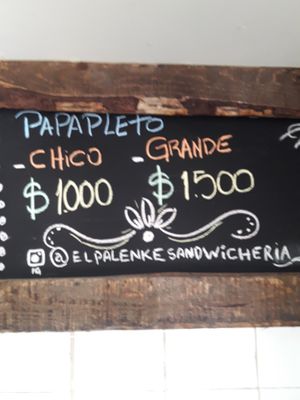 PAPAPLETO
- CHICO - GRANDE
$1.000 $1.500
@ELPALENKESANDWICHERIA
IG